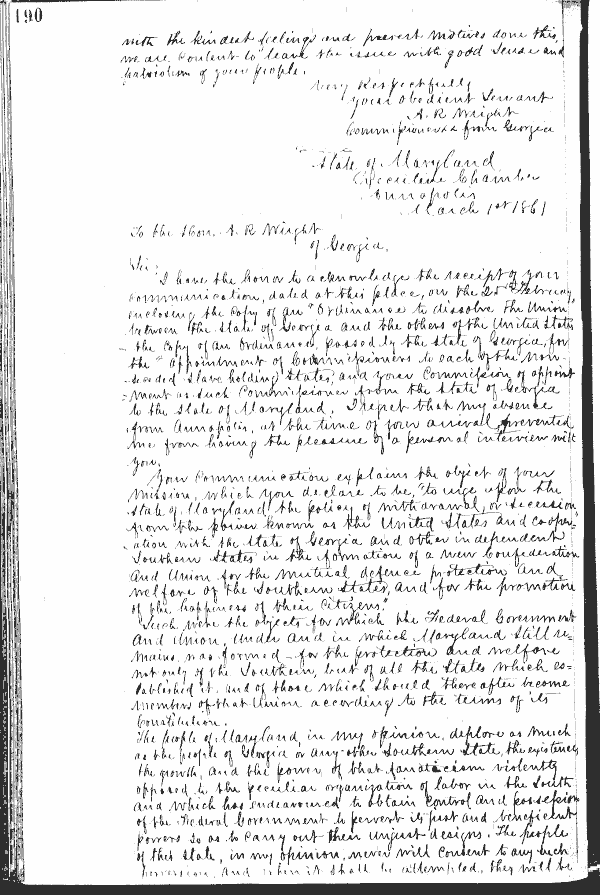 190
with the kindest feelings and purest motives done this,
we are content to leave the issue with good sense and
patriotism of your people.
Very Respectfully
your obedient Servant
A. R Wright
Commissioner &c from Georgia
State of Maryland
Executive Chamber
Annapolis
March 1st 1861
To the Hon. A. R Wright
of Georgia.
Sir:
I have the honor to acknowledge the receipt of your
communication, dated at this place, on the 25th February,
enclosing the copy of an "Ordinance to dissolve the Union
between the State of Georgia and the others of the United States
the copy of an Ordinance, passed by the State of Georgia, for
the "appointment of Commissioners to each of the non-
seceded slave holding States, and your Commission of appoint
ment as such Commissioner from the State of Georgia
to the State of Maryland. I regret that my absence
from Annapolis, at the time of your arrival, prevented
me from having the pleasure of a personal interview with
you.
Your communication explains the object of your
mission, which you declare to be, "to urge upon the
State of Maryland the policy of withdrawal, or secession,
from the power known as the United States and cooper-
ation with the State of Georgia and other independent
Southern States in the formation of a new Confederation
and Union for the mutual defence protection and
welfare of the Southern States, and for the promotion
of the happiness of their Citizens."
Such were the objects for which the Federal Government
and Union, under and in which Maryland still re-
mains, was formed - for the protection and welfare
not only of the Southern, but of all the States which es-
tablished it, and of those which should thereafter become
members of that Union according to the terms of its
Constitution.
The people of Maryland, in my opinion, deplore as much
as the people of Georgia or any other Southern State, the existence,
the growth, and the power of that fanaticism violently
opposed to the peculiar organization of labor in the South
and which has endeavoured to obtain control and possession
of the Federal Government to pervert its just and beneficient
powers so as to carry out their unjust designs. The people
of this State, in my opinion, never will consent to any such
perversion, and when it shall be attempted, they will be